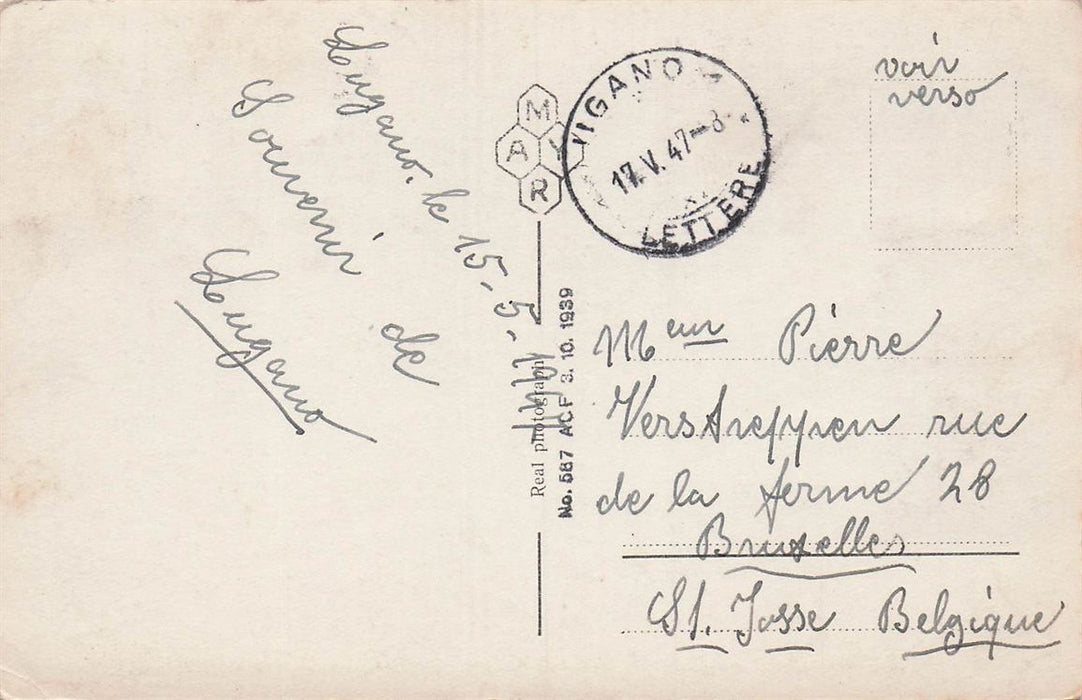 Lugano, le 15-5-1947
Souvenir de
Lugano
MAYR
Real photograph
No. 587 ACF 3. 10. 1939
VIGANO
17. V. 47-8
LETTERE
voir
verso
Meur Pierre
Verstreppen rue
de la ferme 28
Bruxelles
St. Josse Belgique